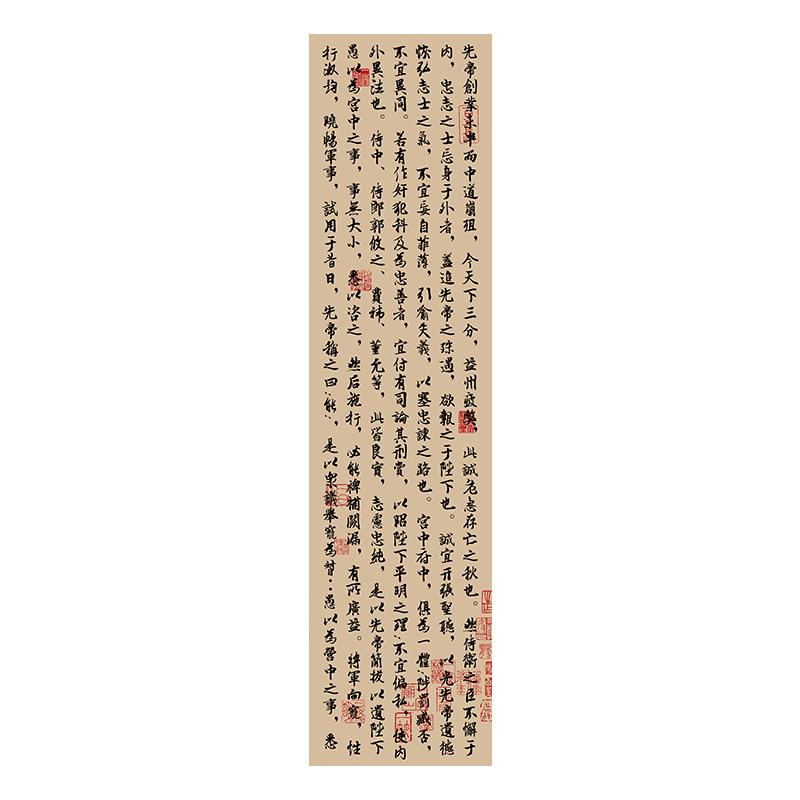 先帝創業未半而中道崩殂，今天下三分，益州疲弊，此誠危急存亡之秋也。然侍衛之臣不懈于
内，忠志之士忘身于外者，蓋追先帝之殊遇，欲報之于陛下也。誠宜开張聖聽，以光先帝遺德
恢弘志士之氣，不宜妄自菲薄，引喻失義，以塞忠諫之路也。宮中府中，俱為一體；陟罰臧否，
不宜異同。若有作奸犯科及為忠善者，宜付有司論其刑賞，以昭陛下平明之理；不宜偏私，使内
外異法也。侍中、侍郎郭攸之、費祎、董允等，此皆良實，志慮忠純，是以先帝簡拔以遺陛下
愚以為宮中之事，事無大小，悉以咨之，然后施行，必能裨補闕漏，有所廣益。將軍向寵，性
行淑均，曉暢軍事，試用于昔日，先帝稱之曰“能”，是以眾議舉寵為督：愚以為營中之事，悉